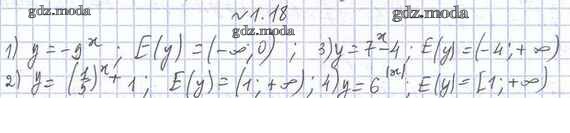 gdz.moda №1.18 gdz.moda
gdz.moda
1) y = -9^x ; E(y) = (-∞; 0) ; 3) y = 7^x - 4 ; E(y) = (-4; +∞)
2) y = (1/5)^x + 1 ; E(y) = (1; +∞) ; 4) y = 6^|x| ; E(y) = [1; +∞)